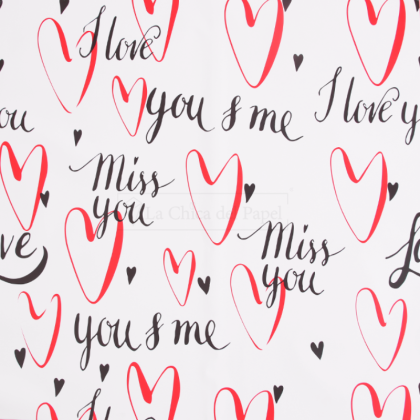 I love
you
you & me
I love y
Miss
you
La Chica de Papel
ve
Miss
you
L
you & me
I
I